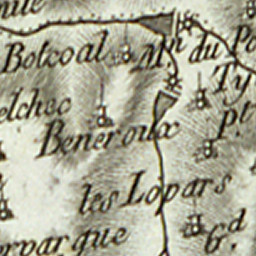 Botcoal
Mln du Po
Ty
elchec
Beneroux
Pt
les Lopars
Gd
erparque